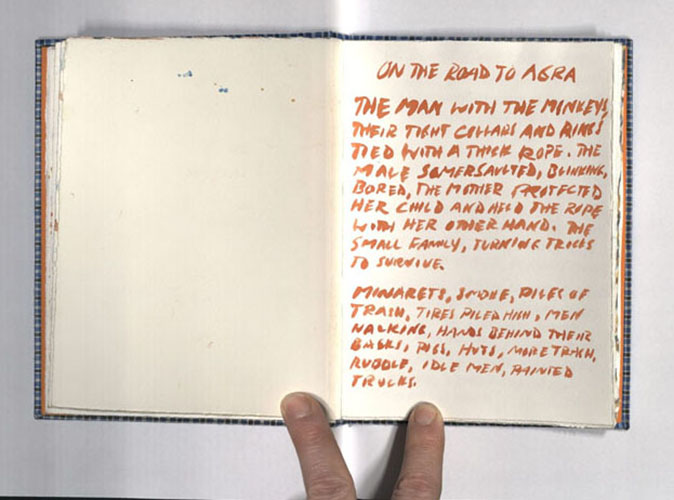 ON THE ROAD TO AGRA
THE MAN WITH THE MONKEYS,
THEIR TIGHT COLLARS AND RINGS
TIED WITH A THICK ROPE. THE
MALE SOMERSAULTED, BLINKING,
BORED, THE MOTHER PROTECTED
HER CHILD AND HELD THE ROPE
WITH HER OTHER HAND. THE
SMALL FAMILY, TURNING TRICKS
TO SURVIVE.
MINARETS, SMOKE, PILES OF
TRASH, TIRES PILED HIGH, MEN
WALKING, HANDS BEHIND THEIR
BACKS, PIGS, HUTS, MORE TRASH,
RUBBLE, IDLE MEN, PAINTED
TRUCKS.